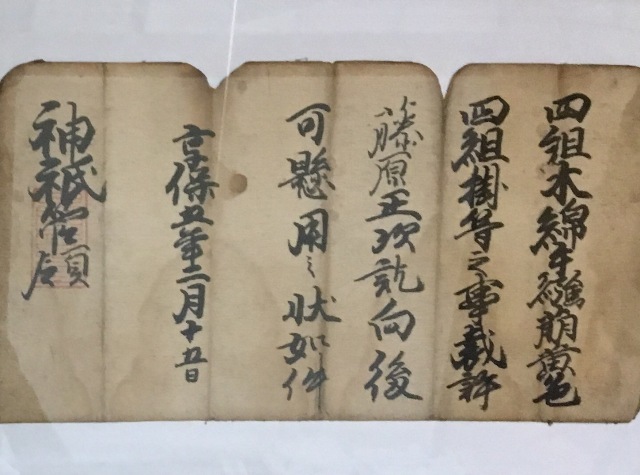 四組木綿手繦萌黄色
四組掛等之事裁許
藤原正次訖向後
可懸用之状如件
享保五年二月十五日
神祇管領